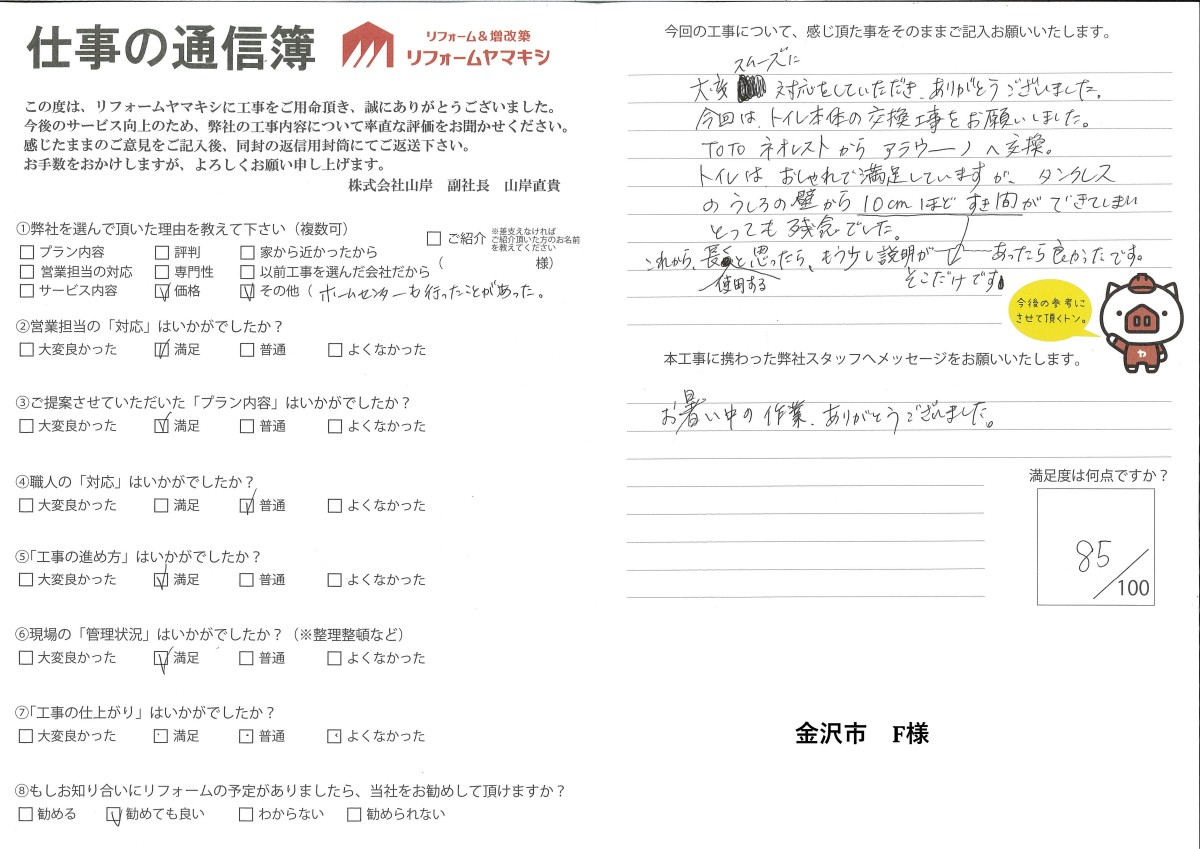 仕事の通信簿
リフォーム&増改築
リフォームヤマキシ
この度は、リフォームヤマキシに工事をご用命頂き、誠にありがとうございました。
今後のサービス向上のため、弊社の工事内容について率直な評価をお聞かせください。
感じたままのご意見をご記入後、同封の返信用封筒にてご返送下さい。
お手数をおかけしますが、よろしくお願い申し上げます。
株式会社山岸　副社長　山岸直貴
①弊社を選んで頂いた理由を教えて下さい（複数可）
□ プラン内容 □ 評判 □ 家から近かったから
□ 営業担当の対応 □ 専門性 □ 以前工事を選んだ会社だから
□ サービス内容 ☑ 価格 ☑ その他（ ホームセンターも行ったことがあった。
□ ご紹介 ※差支えなければ
ご紹介頂いた方のお名前
を教えてください
（　　　　　　様）
②営業担当の「対応」はいかがでしたか？
□ 大変良かった ☑ 満足 □ 普通 □ よくなかった
③ご提案させていただいた「プラン内容」はいかがでしたか？
□ 大変良かった ☑ 満足 □ 普通 □ よくなかった
④職人の「対応」はいかがでしたか？
□ 大変良かった □ 満足 ☑ 普通 □ よくなかった
⑤「工事の進め方」はいかがでしたか？
□ 大変良かった ☑ 満足 □ 普通 □ よくなかった
⑥現場の「管理状況」はいかがでしたか？（※整理整頓など）
□ 大変良かった ☑ 満足 □ 普通 □ よくなかった
⑦「工事の仕上がり」はいかがでしたか？
□ 大変良かった □ 満足 □ 普通 □ よくなかった
⑧もしお知り合いにリフォームの予定がありましたら、当社をお勧めして頂けますか？
□ 勧める ☑ 勧めても良い □ わからない □ 勧められない
今回の工事について、感じ頂た事をそのままご記入お願いいたします。
スムーズに
大変 対応をしていただき、ありがとうございました。
今回は、トイレ本体の交換工事をお願いしました。
TOTO ネオレストから アラウーノへ交換。
トイレは、おしゃれで満足していますが、タンクレス
のうしろの壁から10cmほどすき間ができてしまい
とっても残念でした。
これから、長く と思ったら、もう少し説明が あったら良かったです。
使用する そこだけです。
今後の参考に
させて頂くトン。
ヤ
本工事に携わった弊社スタッフへメッセージをお願いいたします。
お暑い中の作業、ありがとうございました。
満足度は何点ですか？
85／100
金沢市　F様